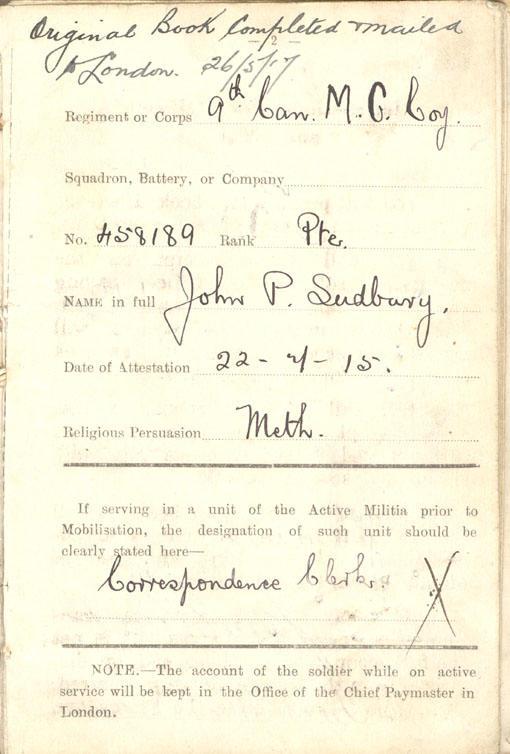 Original Book Completed & mailed
— 2 —
to London. 26/5/17
Regiment or Corps 9th Can. M. G. Coy.
Squadron, Battery, or Company
No. 458189 Rank Pte.
NAME in full John P. Sudbury.
Date of Attestation 22 - 7 - 15.
Religious Persuasion Meth.
If serving in a unit of the Active Militia prior to
Mobilisation, the designation of such unit should be
clearly stated here—
Correspondence Clerk. X
NOTE.—The account of the soldier while on active
service will be kept in the Office of the Chief Paymaster in
London.